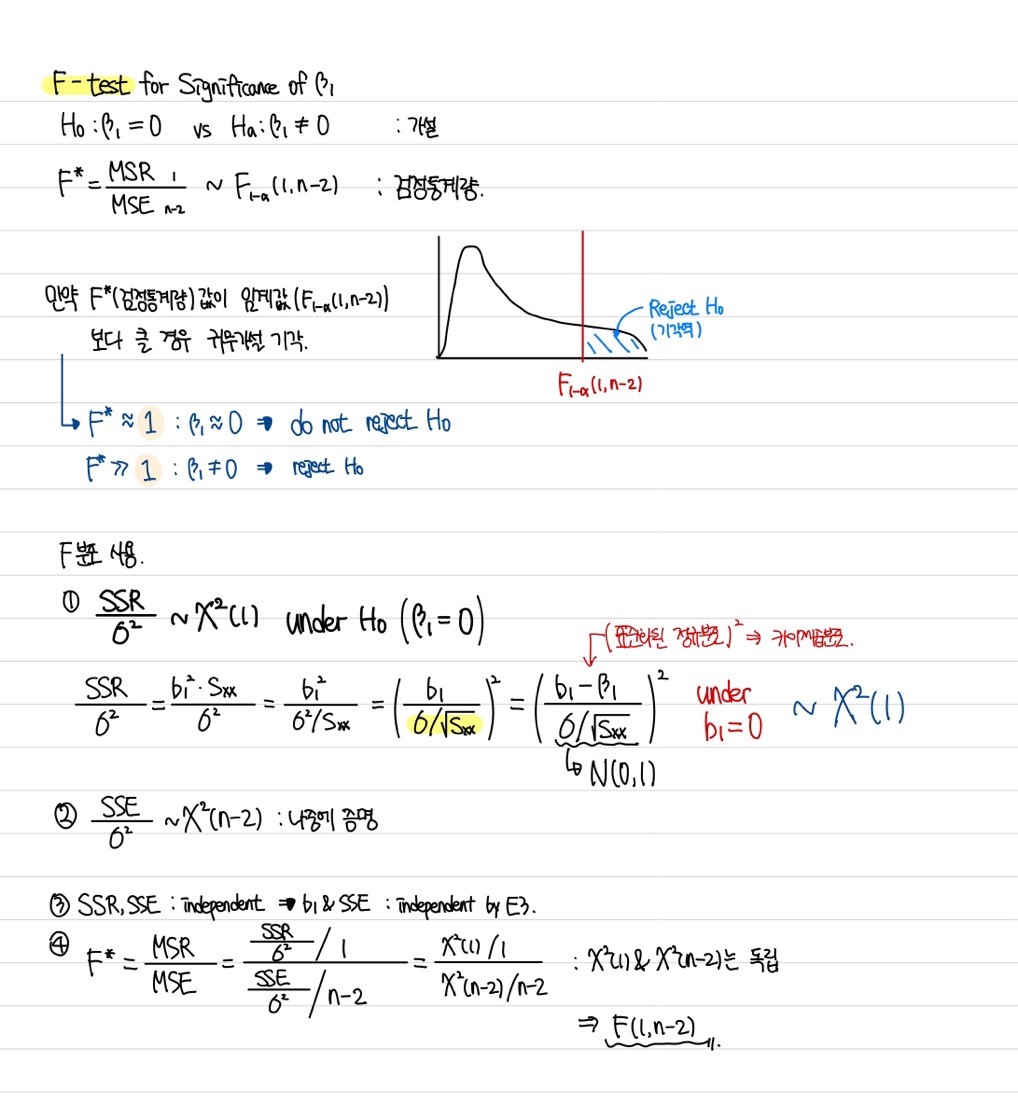 F-test for Significance of β₁
H₀ : β₁ = 0 vs Ha : β₁ ≠ 0 : 가설
F* = MSR 1 / MSE n-2 ~ F₁₋α(1, n-2) : 검정통계량.
만약 F*(검정통계량) 값이 임계값(F₁₋α(1, n-2))
보다 클 경우 귀무가설 기각.
Reject H₀
(기각역)
F₁₋α(1, n-2)
F* ≈ 1 : β₁ ≈ 0 ⇒ do not reject H₀
F* ≫ 1 : β₁ ≠ 0 ⇒ reject H₀
F분포 사용.
① SSR/σ² ~ X²(1) under H₀ (β₁ = 0)
(표준화된 정규분포)² ⇒ 카이제곱분포.
SSR/σ² = b₁²·Sxx/σ² = b₁²/(σ²/Sxx) = (b₁/(σ/√Sxx))² = ((b₁-β₁)/(σ/√Sxx))² under b₁=0 ~ X²(1)
↳ N(0,1)
② SSE/σ² ~ X²(n-2) : 나중에 증명
③ SSR, SSE : independent ⇒ b₁ & SSE : independent by E3.
④ F* = MSR/MSE = (SSR/σ² / 1)/(SSE/σ² / n-2) = (X²(1)/1)/(X²(n-2)/n-2) : X²(1) & X²(n-2)는 독립
⇒ F(1, n-2)